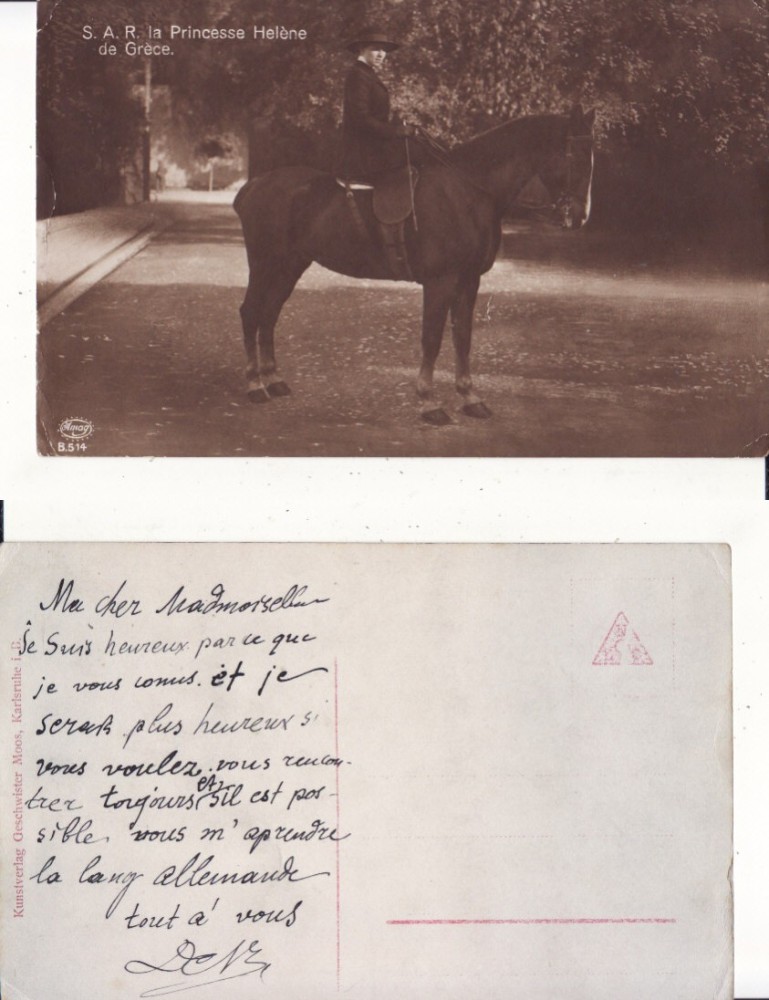 S. A. R. la Princesse Helène
de Grèce.
Amag
B.514
Kunstverlag Geschwister Moos, Karlsruhe i. B.
Ma cher Madmoiselle
Je Suis heureux parce que
je vous conus. et je
serais plus heureux si
vous voulez. vous rencon-
trer toujours et, s'il est pos-
sible. vous m'aprendre
la lang allemande
tout a' vous